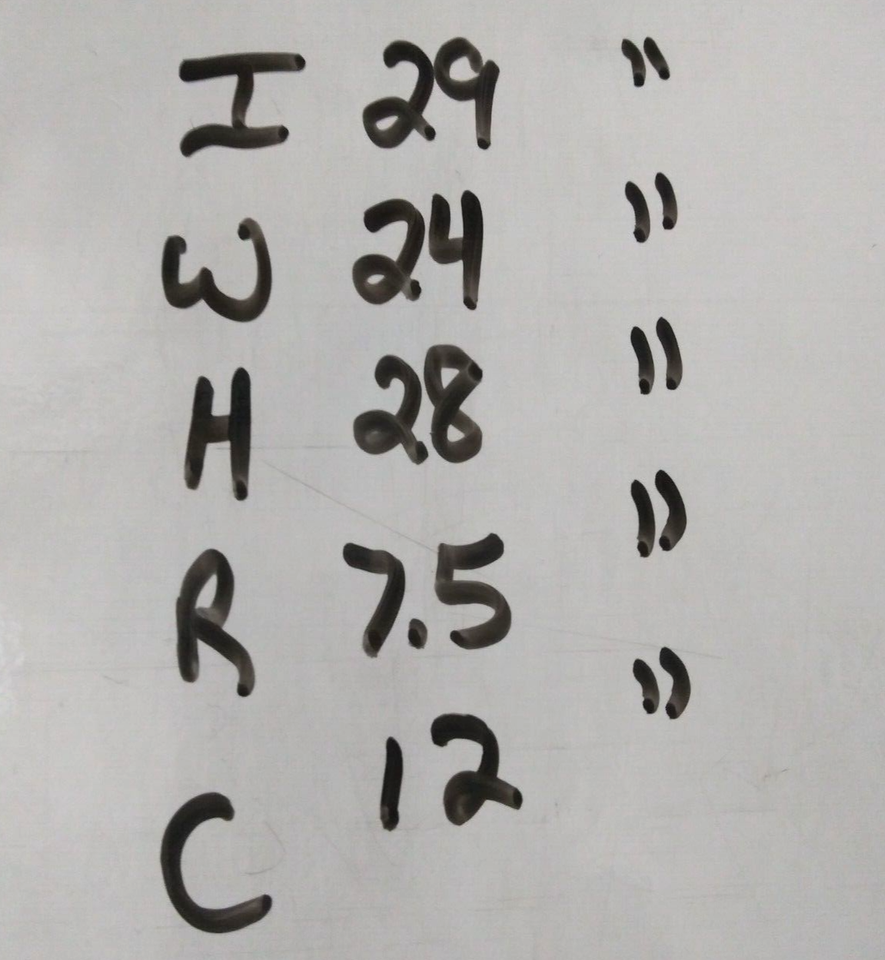 I 29 "
W 24 "
H 28 "
R 7.5 "
C 12 "